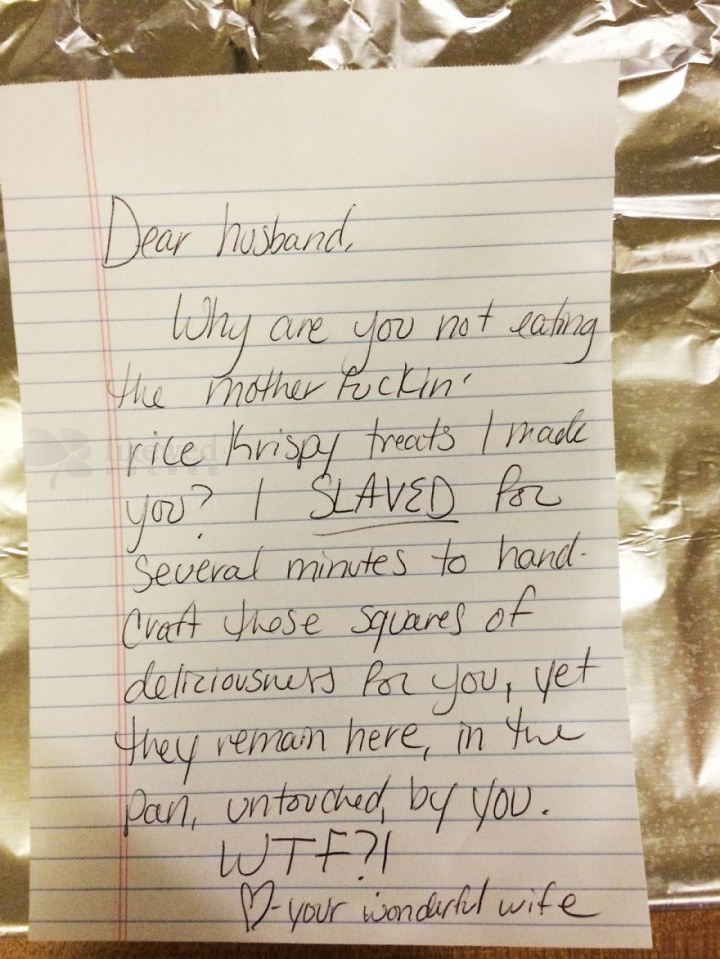 Dear husband,
Why are you not eating
the mother fuckin'
rice Krispy treats I made
you? I SLAVED for
several minutes to hand-
craft these squares of
deliciousness for you, yet
they remain here, in the
pan, untouched, by you.
WTF?!
♡-your wonderful wife